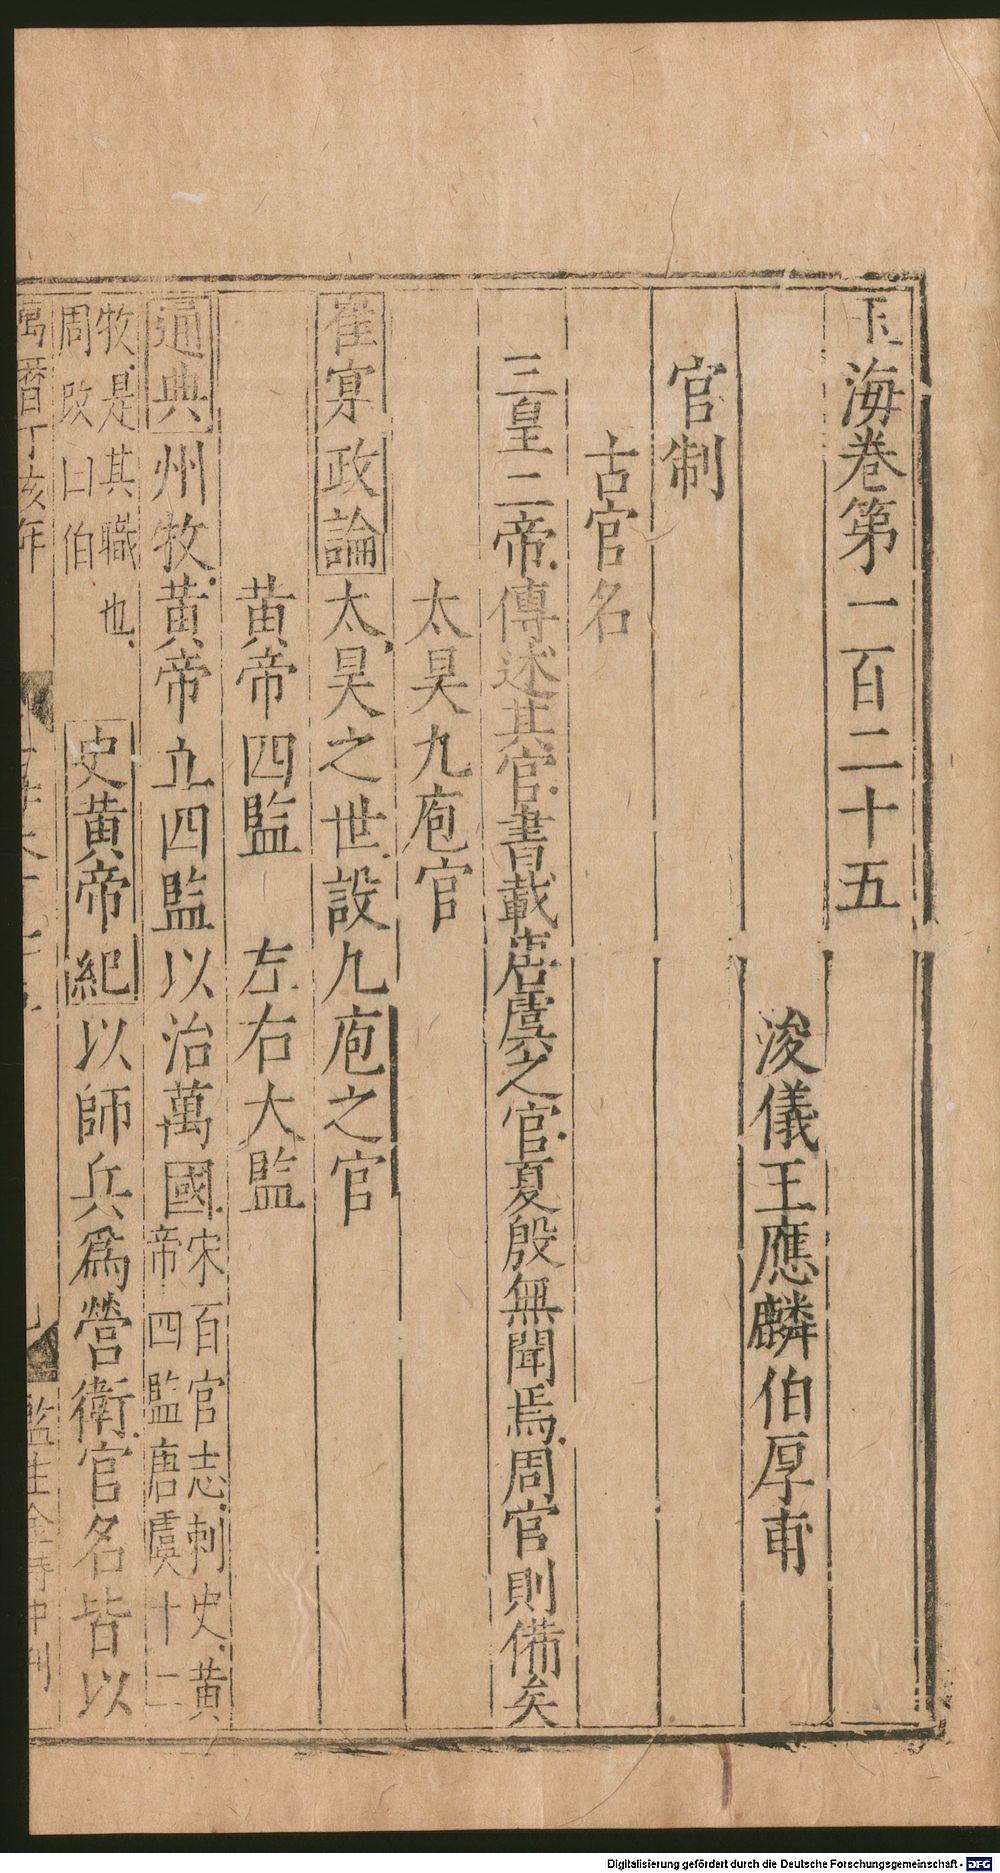 玉海卷第一百二十五
浚儀王應麟伯厚甫
官制
古官名
三皇二帝傳述其官書載唐虞之官夏殷無聞焉周官則備矣
太昊九庖官
崔寔政論太昊之世設九庖之官
黃帝四監 左右大監
通典州牧黃帝立四監以治萬國宋百官志刺史黃
帝四監唐虞十二
牧是其職也
周改曰伯
史黃帝紀以師兵爲營衛官名皆以
萬曆丁亥年
監生金
Digitalisierung gefördert durch die Deutsche Forschungsgemeinschaft - DFG